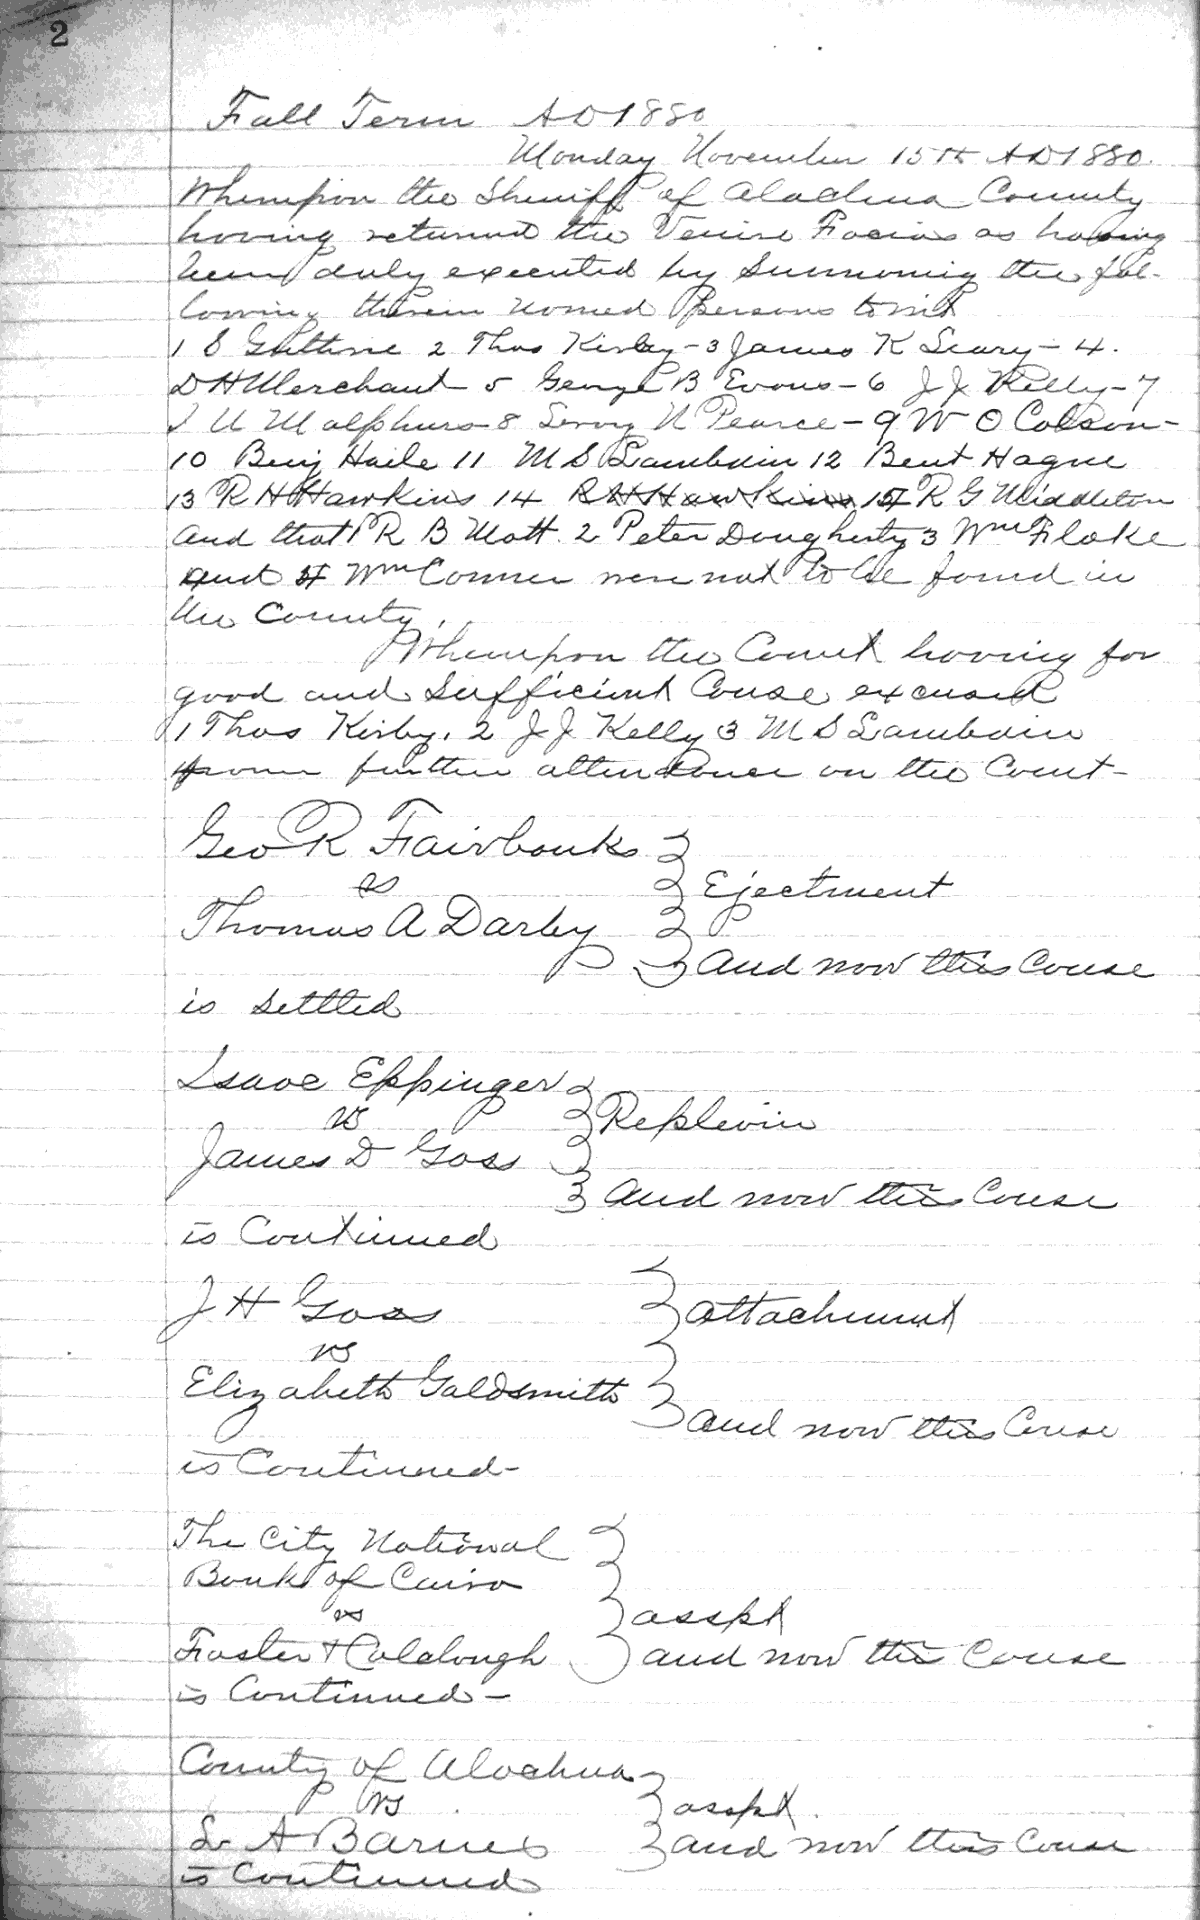 2
Fall Term AD 1880
Monday November 15th AD 1880.
Whereupon the Sheriff of Alachua County
having returned the Venire Facias as having
been duly executed by Summoning the fol-
lowing therein named Persons towit
1 S Guthrie 2 Thos Kirby - 3 James K Leary - 4.
D H Merchant 5 George B Evans - 6 J J Kelly - 7
J U Malphurs - 8 Leroy N Pearce - 9 W O Colson -
10 Benj Haile 11 M S Lambdin 12 Bent Hague
13 R H Hawkins 14 R H Hawkins 15 R G Middleton
and that 1 R B Mott. 2 Peter Dougherty 3 Wm Flake
and 4 Wm Conner were not to be found in
the County.
Whereupon the Court having for
good and sufficient Cause excused
1 Thos Kirby. 2 J J Kelly 3 M S Lambdin
from further attendance on the Court -
Geo R Fairbanks
vs
Ejectment
Thomas A Darby
and now this Cause
is Settled
Isaac Eppinger
vs
Replevin
James D Goss
and now this Cause
is Continued
J H Goss
attachment
vs
Elizabeth Goldsmith
and now this Cause
is Continued -
The City National
Bank of Cairo
vs
asspt
Foster & Colclough
and now this Cause
is Continued -
County of Alachua
vs
asspt.
L A Barnes
and now this Cause
is Continued